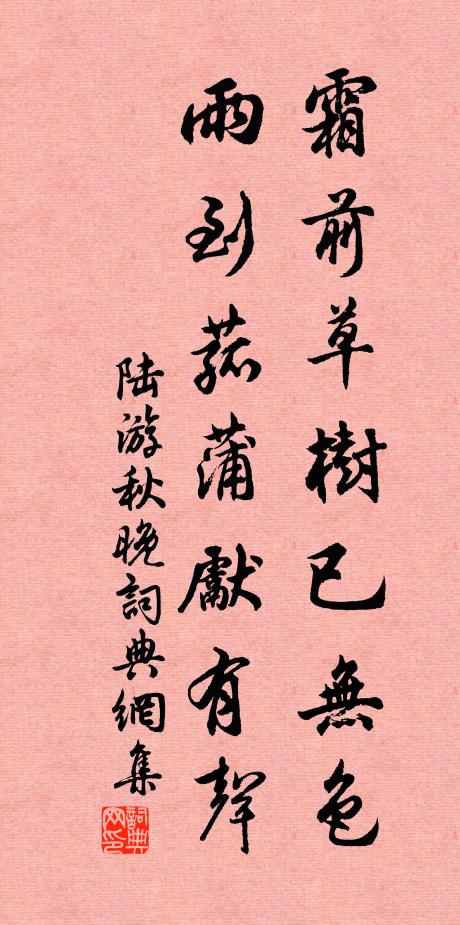 霜前草樹已無色
雨到菰蒲獻有聲
陆游秋晚詞典網集
詞典
网印